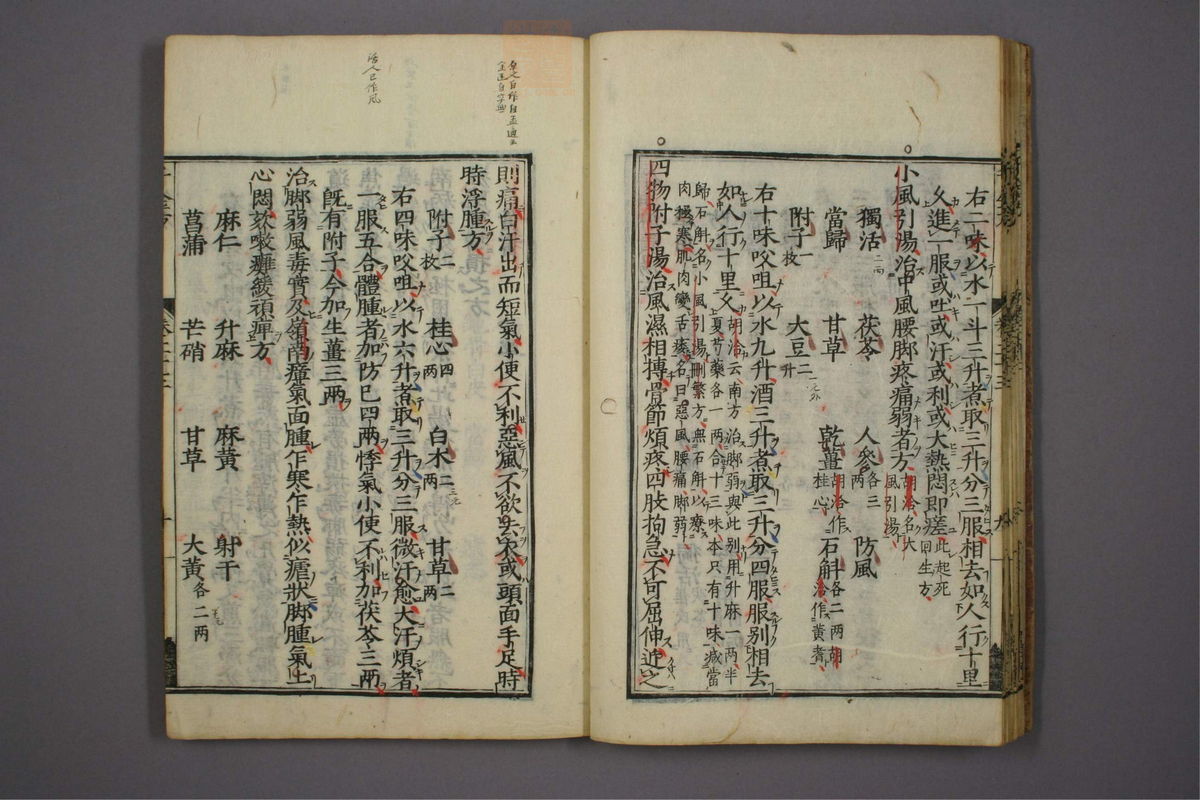 右二味以水一斗三升煮取三升分三服相去如人行十里
久進一服或吐或汗或利或大熱悶即瘥此起死回生方
小風引湯治中風腰脚疼痛弱者方胡洽名大風引湯
獨活二兩 茯苓 人參各三兩 防風
當歸 甘草 乾薑胡洽作桂心 石斛各二兩胡洽作黄耆
附子一枚 大豆二升
右十味㕮咀以水九升酒三升煮取三升分四服服别相去
如人行十里久胡洽云南方治脚弱與此别用升麻一兩半夏芍藥各一兩合十三味本只有十味减當
歸石斛名小風引湯刪繁方無石斛以療肉極寒肌肉變舌痿名曰惡風腰痛脚弱
四物附子湯治風濕相摶骨節煩疼四肢拘急不可屈伸近之
則痛白汗出而短氣小便不利惡風不欲去衣或頭面手足時
時浮腫方
附子二枚 桂心四兩 白术三兩 甘草二兩
右四味㕮咀以水六升煮取三升分三服微汗愈大汗煩者
一服五合體腫者加防已四兩悸氣小便不利加茯苓三兩
旣有附子今加生薑三兩
治脚弱風毒實及嶺南瘴氣面腫乍寒乍熱似瘧狀脚腫氣上
心悶欬嗽癱緩頑痺方
麻仁 升麻 麻黄 射干
菖蒲 芒硝 甘草 大黄各二兩
活人已作風